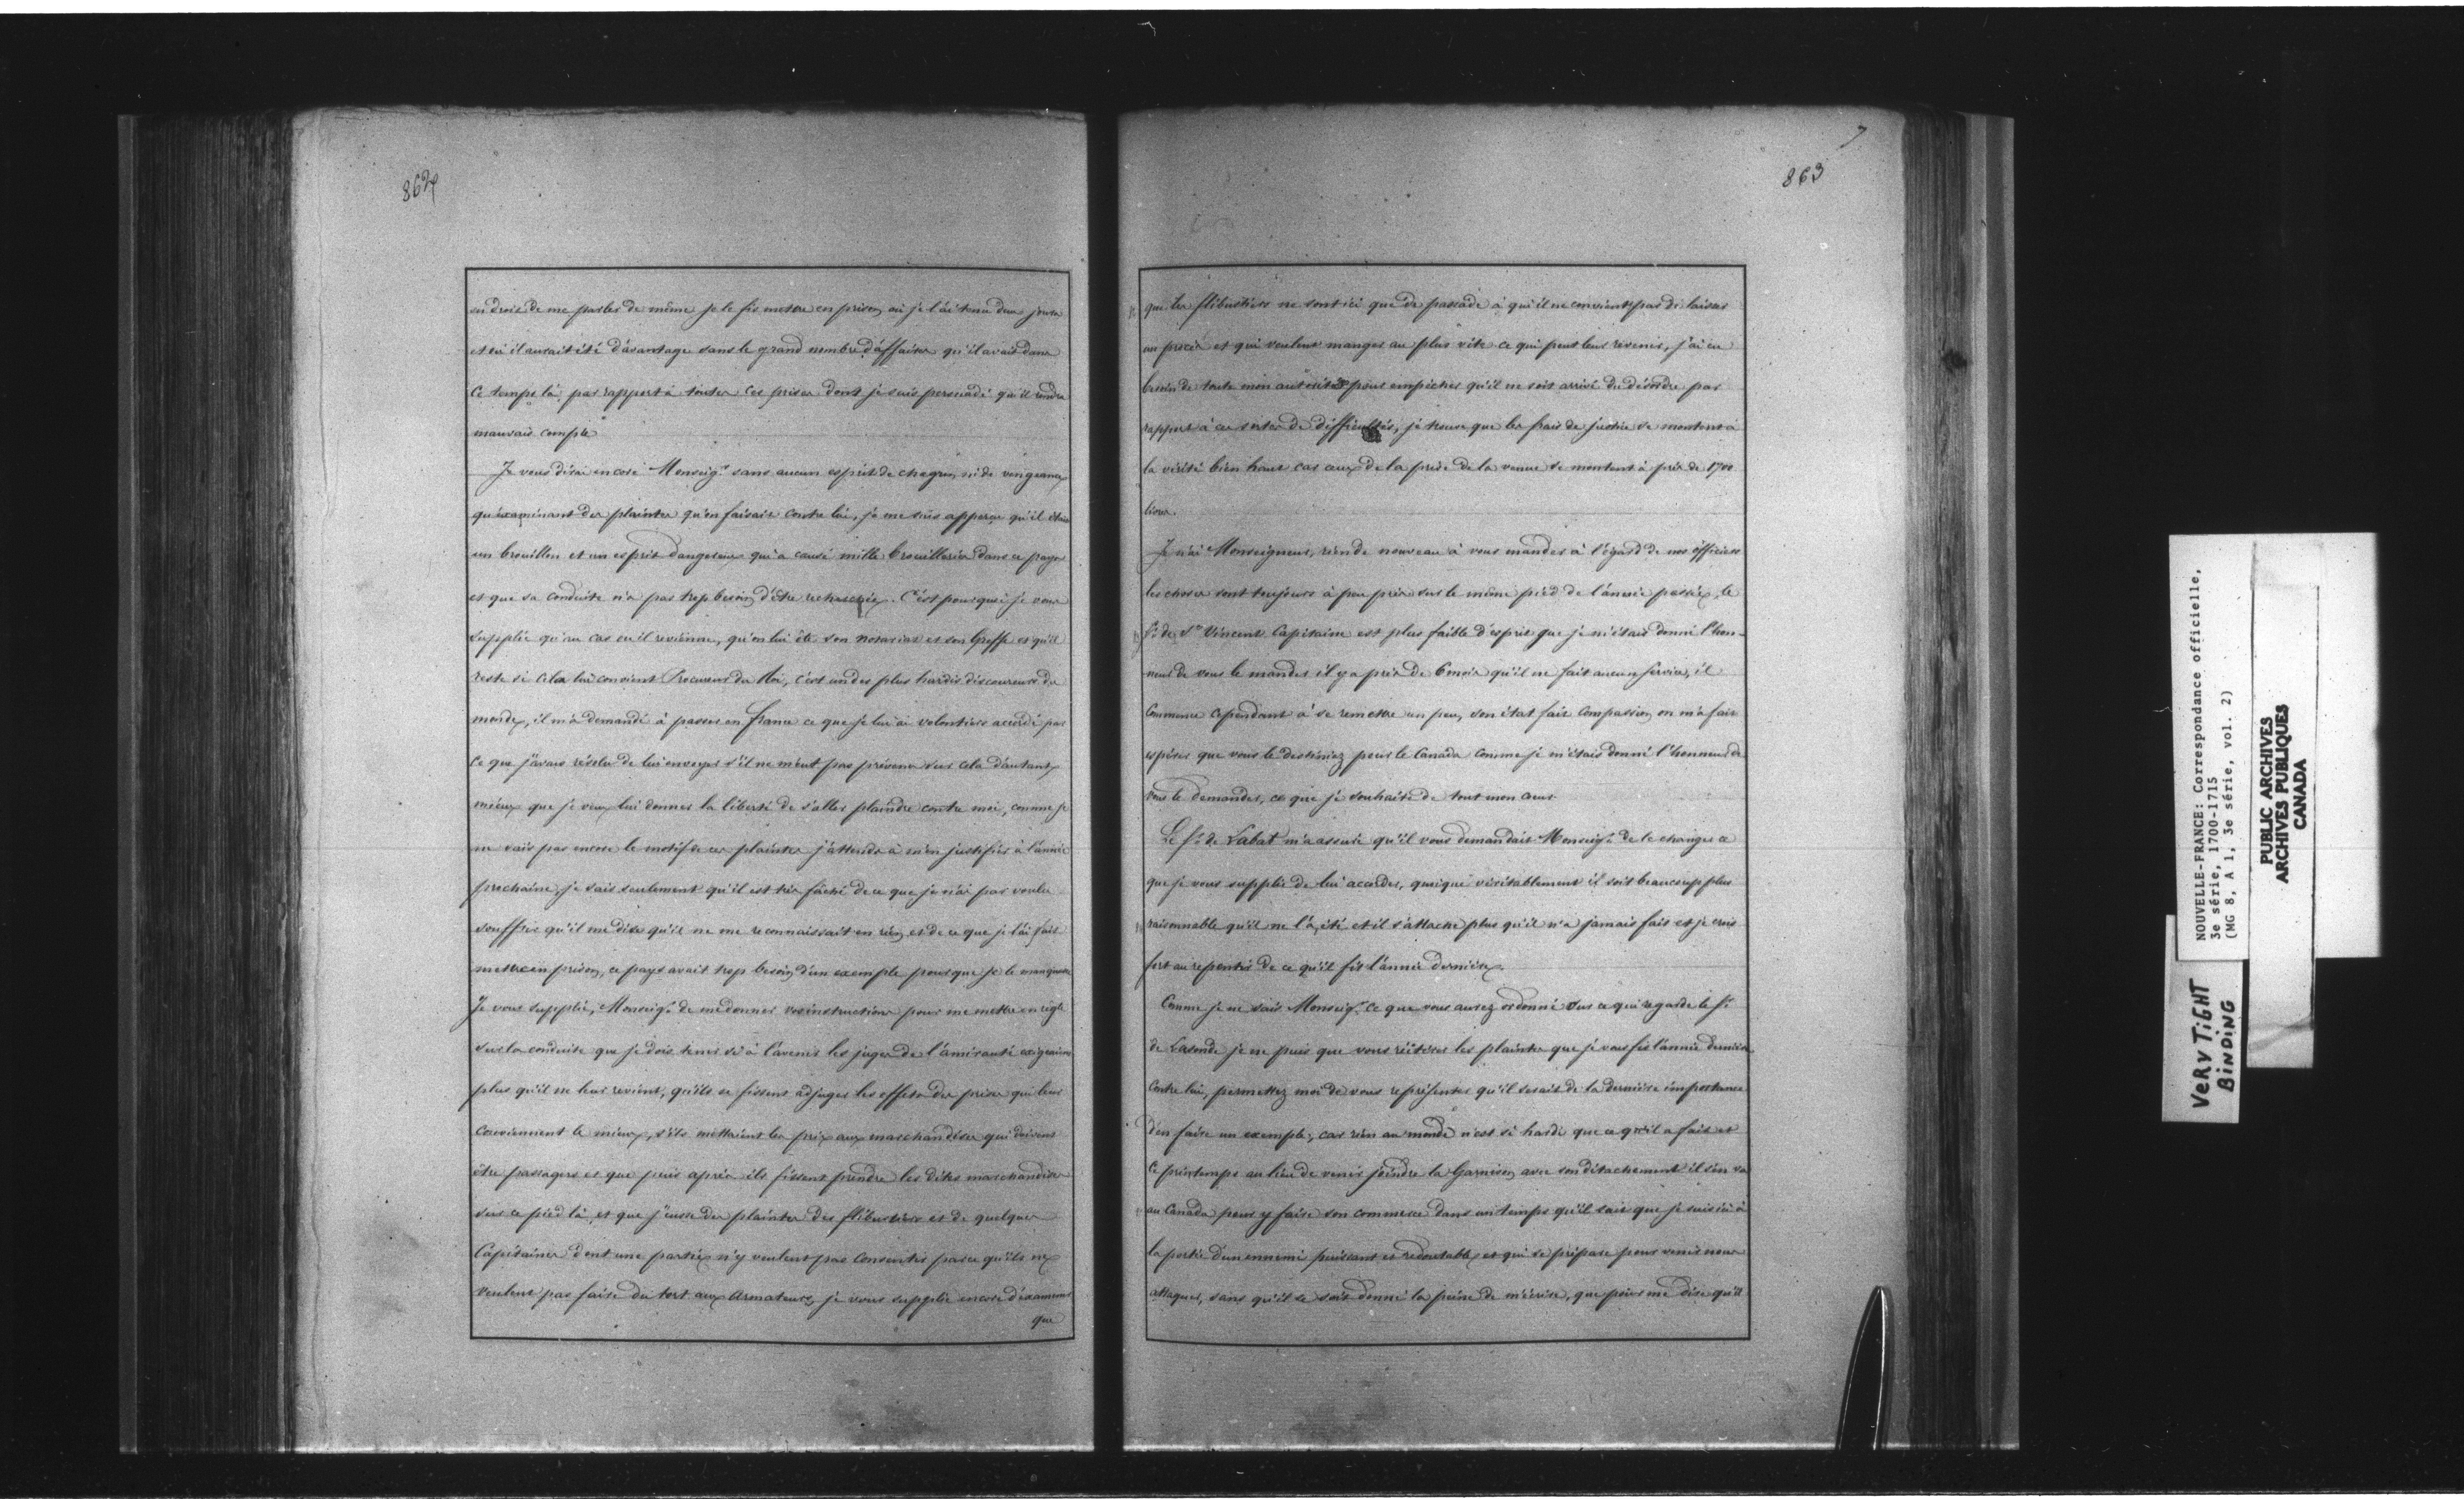 862
en droit de me parler de même je le fis mettre en prison où je l'ai tenu deux jours
et où il aurait été d'avantage sans le grand nombre d'affaires qu'il avait dans
ce temps là par rapport à toutes ces prises dont je suis persuadé qu'il rendra
mauvais compte
Je vous dirai encore Monseigr. sans aucun esprit de chagrin ni de vengeance
qu'examinant des plaintes qu'on faisait contre lui, je me suis apperçu qu'il était
un brouillon et un esprit dangereux qui a causé mille brouilleries dans ce pays
et que sa conduite n'a pas trop besoin d'être recherchée. C'est pourquoi je vous
supplie qu'au cas où il revienne, qu'on lui ôte son notariat et son Greffe et qu'il
reste si cela lui convient Procureur du Roi, c'est un des plus hardis discoureurs du
monde, il m'a demandé à passer en france ce que je lui ai volontiers accordé par
ce que j'avais résolu de lui envoyer s'il ne m'eut pas prévenu sur cela d'autant
mieux que je veux lui donner la liberté de s'aller plaindre contre moi, comme je
ne sais pas encore le motif de ces plaintes j'attends à m'en justifier à l'année
prochaine, je sais seulement qu'il est très fâché de ce que je n'ai pas voulu
souffrir qu'il me dise qu'il ne me reconnaissait en rien et de ce que je l'ai fait
mettre en prison, ce pays avait trop besoin d'un exemple pour que je le manquasse
Je vous supplie, Monseigr. de me donner vos instructions pour me mettre en règle
sur la conduite que je dois tenir si à l'avenir les juges de l'amirauté exigeaient
plus qu'il ne leur revient, qu'ils se fissent adjuger les effets des prises qui leur
conviennent le mieux, s'ils mettaient les prix aux marchandises qui doivent
être partagers et que puis après ils fissent prendre les dites marchandises
sur ce pied là, et que j'eusse des plaintes des flibustiers et de quelques
Capitaines dont une partie n'y veulent pas consentir parce qu'ils ne
veulent pas faire du tort aux Armateurs, je vous supplie encore d'examiner
que
7
863
que les flibustiers ne sont ici que de passade à qui il ne convient pas de laisser
un procès et qui veulent manger au plus vite ce qui peut leur revenir, j'ai eu
besoin de toute mon autorité pour empêcher qu'il ne soit arrivé du désordre par
rapport à ces sortes de difficultés, je trouve que les frais de justice se montent à
la vérité bien haut car ceux de la prise de la venue se montent à près de 1700
livres.
Je n'ai Monseigneur, rien de nouveau à vous mander à l'égard de nos officiers
les choses sont toujours à peu près sur le même pied de l'année passée, le
Sr. de St. Vincent Capitaine est plus faible d'esprit que je m'étais donné l'hon-
neur de vous le mander il y a près de 6 mois qu'il ne fait aucun service, il
commence cependant à se remettre un peu, son état fait compassion on m'a fait
espérer que vous le destiniez pour le Canada comme je m'étais donné l'honneur de
vous le demander, ce que je souhaite de tout mon cœur.
Le Sr. de Labat m'a assuré qu'il vous demandait Monseigr. de le changer ce
que je vous supplie de lui accorder, quoique véritablement il soit beaucoup plus
raisonnable qu'il ne l'a été et il s'attache plus qu'il n'a jamais fait et je crois
fort au repentir de ce qu'il fit l'année dernière.
Comme je ne sais Monseigr. ce que vous aurez ordonné sur ce qui regarde le Sr.
de Lasonde je ne puis que vous réitérer les plaintes que je vous fis l'année dernière
contre lui, permettez moi de vous représenter qu'il serait de la dernière importance
d'en faire un exemple, car rien au monde n'est si hardi que ce qu'il a fait et
ce printemps au lieu de venir joindre la Garnison avec son détachement il s'en va
au Canada pour y faire son commerce dans un temps qu'il sait que je suis ici à
la portée d'un ennemi puissant et redoutable, et qui se prépare pour venir nous
attaquer, sans qu'il se soit donné la peine de m'écrire, que pour me dire qu'il
NOUVELLE-FRANCE: Correspondance officielle,
3e série, 1700-1715
(MG 8, A 1, 3e série, vol. 2)
PUBLIC ARCHIVES
ARCHIVES PUBLIQUES
CANADA
VERY TIGHT
BINDING